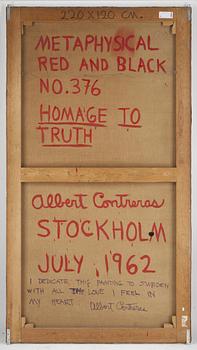 220X120 CM.
METAPHYSICAL
RED AND BLACK
NO.376
HOMAGE TO
TRUTH
Albert Contreras
STOCKHOLM
JULY, 1962
I DEDICATE THIS PAINTING TO SWEDEN
WITH ALL THE LOVE I FEEL IN
MY HEART. Albert Contreras